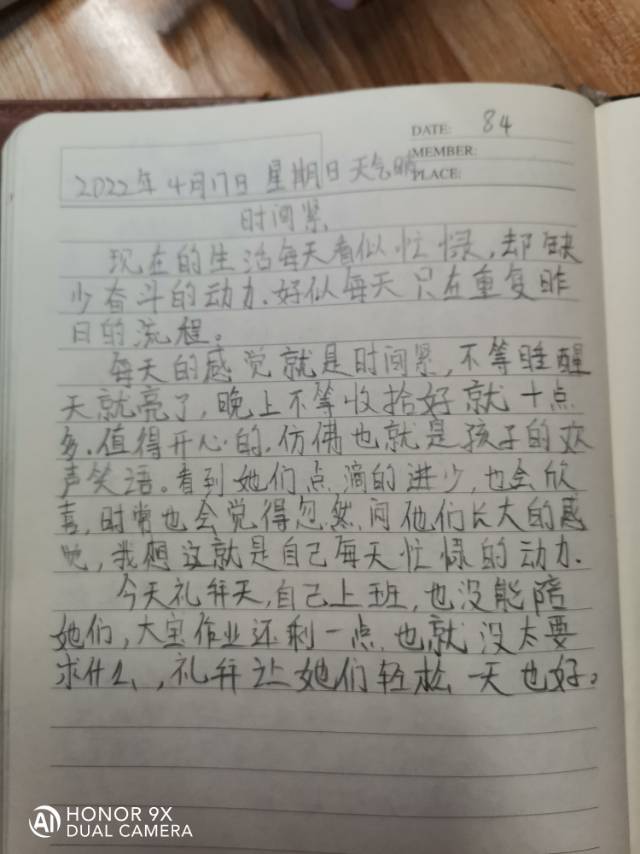 DATE: 84
MEMBER:
PLACE:
2022年4月17日 星期日 天气晴
时间紧
现在的生活每天看似忙碌,却缺
少奋斗的动力.好似每天只在重复昨
日的流程。
每天的感觉就是时间紧,不等睡醒
天就亮了,晚上不等收拾好就十点
多.值得开心的.仿佛也就是孩子的欢
声笑语。看到她们点滴的进步,也会欣
喜,时常也会觉得忽然间他们长大的感
觉,我想这就是自己每天忙碌的动力.
今天礼拜天,自己上班,也没能陪
她们,大宝作业还剩一点.也就没太要
求什么,礼拜让她们轻松一天也好。
HONOR 9X
AI DUAL CAMERA